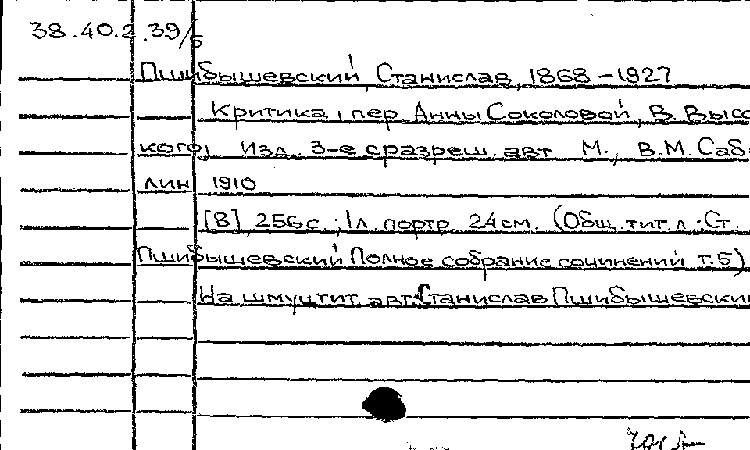 38.40.2.39/5
Пшибышевский, Станислав, 1868-1927
Критика, пер Анны Соколовой, В. Высо
кого, Изд. 3-е с разреш. авт М., В.М. Саб
лин 1910
[8], 256 с.; 1л. портр. 24 см. (Общ. тит. л.: Ст.
Пшибышевский Полное собрание сочинений т.5)
На шмуцтит. авт: Станислав Пшибышевский